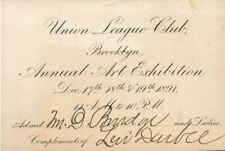 Union League Club,
Brooklyn.
Annual Art Exhibition
Dec. 17th 18th & 19th 1891.
11 A.M. to 10 P.M.
Admit M. D. and Ladies,
Compliments of Levi